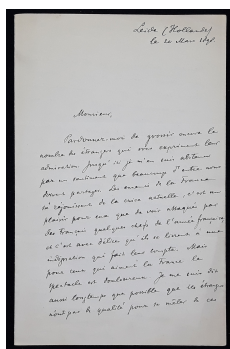 Leide (Hollande)
le 20 Mars 1898
Monsieur,
Pardonnez-moi de grossir encore le
nombre des étrangers qui vous expriment leur
admiration. Jusqu'ici je m'en suis abstenu
par un sentiment que beaucoup d'entre nous
doivent partager. Les ennemis de la France
se réjouissent de la crise actuelle, c'est un
plaisir pour eux que de voir attaqués par
des Français quelques chefs de l'armée française
et c'est avec délices qu'ils se livrent à une
indignation qui fait leur compte. Mais
pour ceux qui aiment la France le
spectacle est douloureux. Je me suis dit
aussi longtemps que possible que les étrangers
n'ont pas la qualité pour se mêler de ces